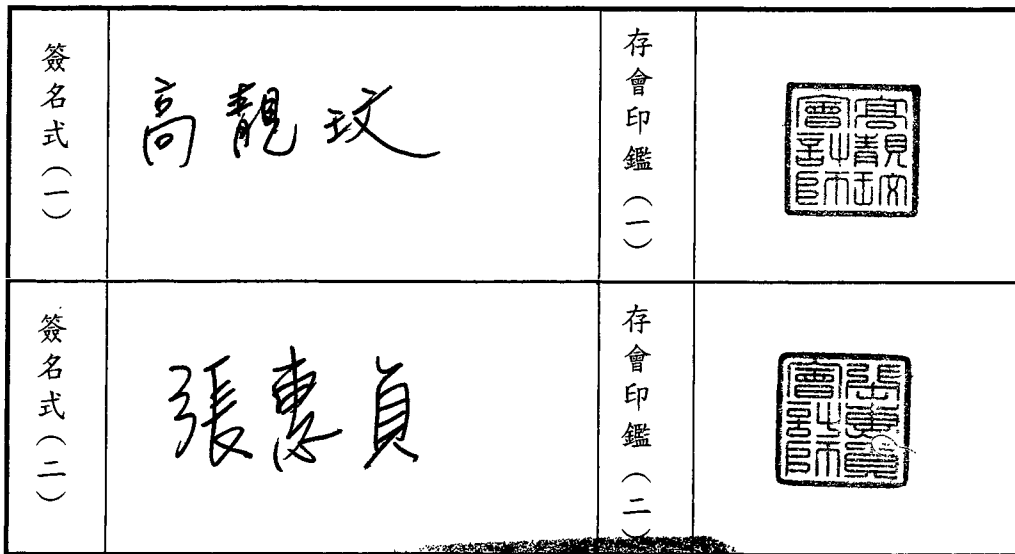 簽名式（一）
高靚玟
存會印鑑（一）
高靚玟會計師
簽名式（二）
張惠貞
存會印鑑（二）
張惠貞會計師